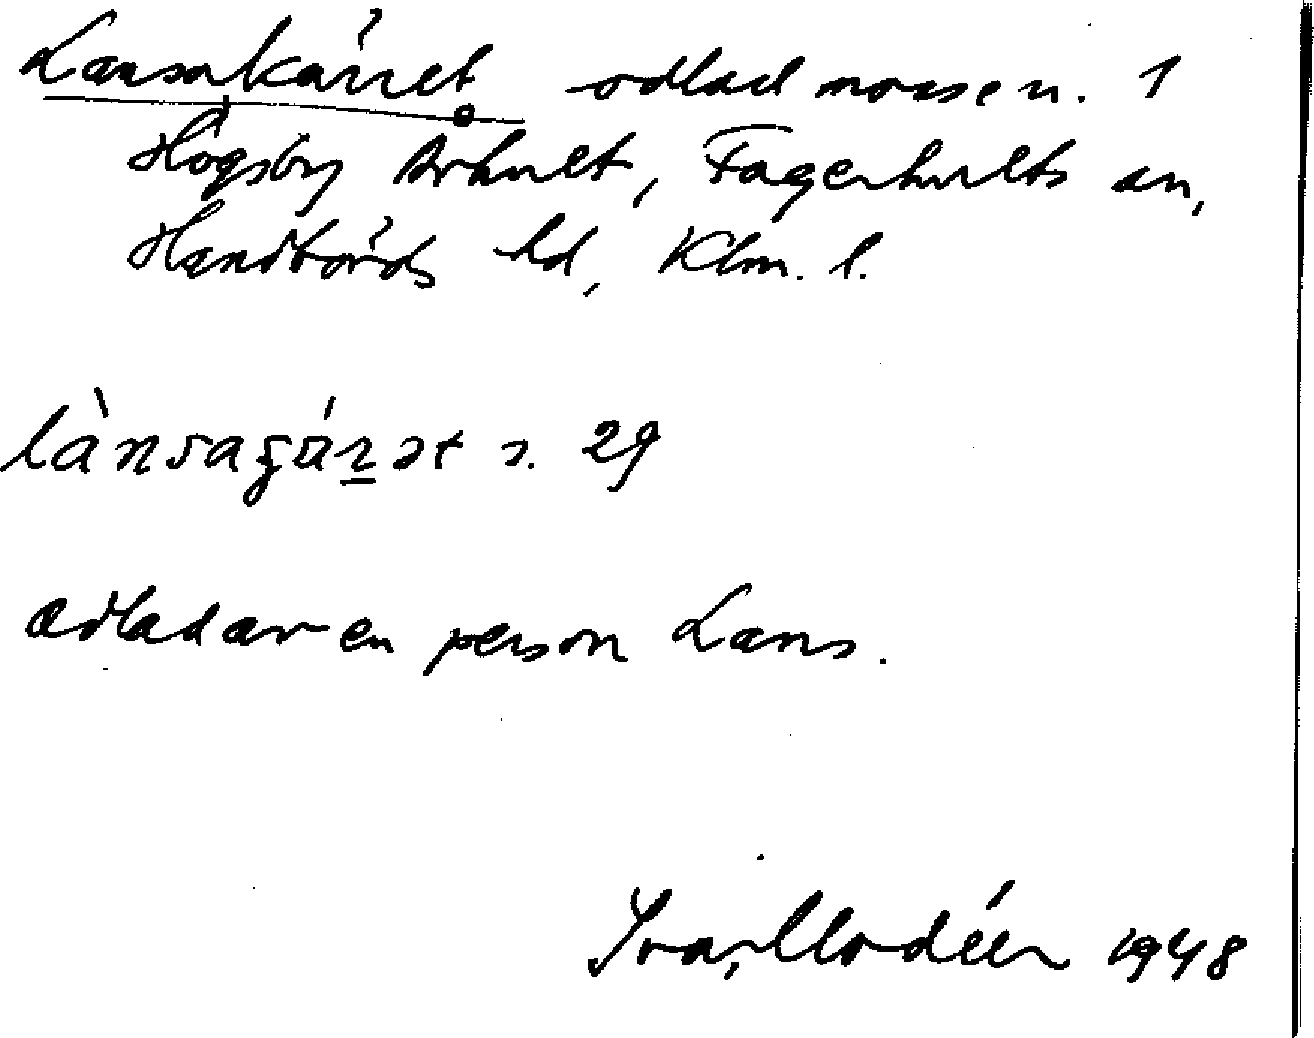 Lansakärret odlad mosse n. 1
Högsby Århult, Fagerhults sn,
Handbörds hd, Klm. l.
lànsagárət s. 29
Odlad av en person Lans.
Ivar Modéer 1948